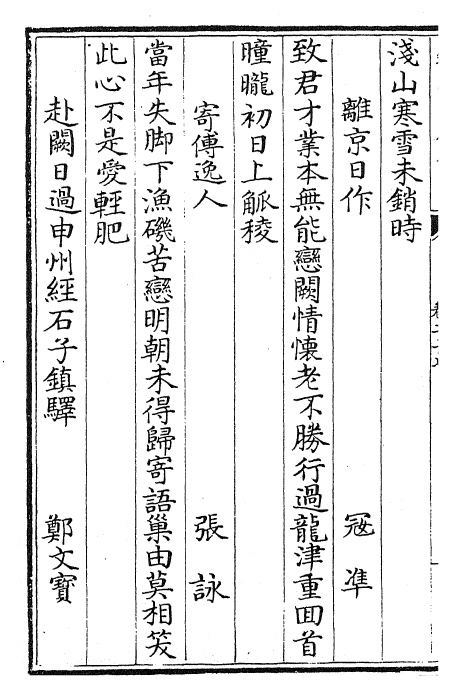 淺山寒雪未銷時
離京日作 冦凖
致君才業本無能戀闕情懷老不勝行過龍津重囬首
曈曨初日上觚稜
寄傅逸人 張詠
當年失脚下漁磯苦戀明朝未得歸寄語巢由莫相笑
此心不是愛輕肥
赴闕日過申州經石子鎮驛 鄭文寶